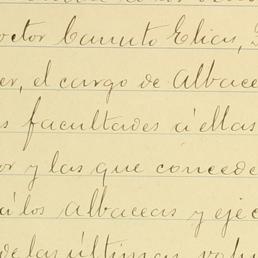 octor Canuto Elias,
er, el cargo de Albace
s facultades á ellas
or y las que concede
á los albaceas y ejec
de las últimas volun